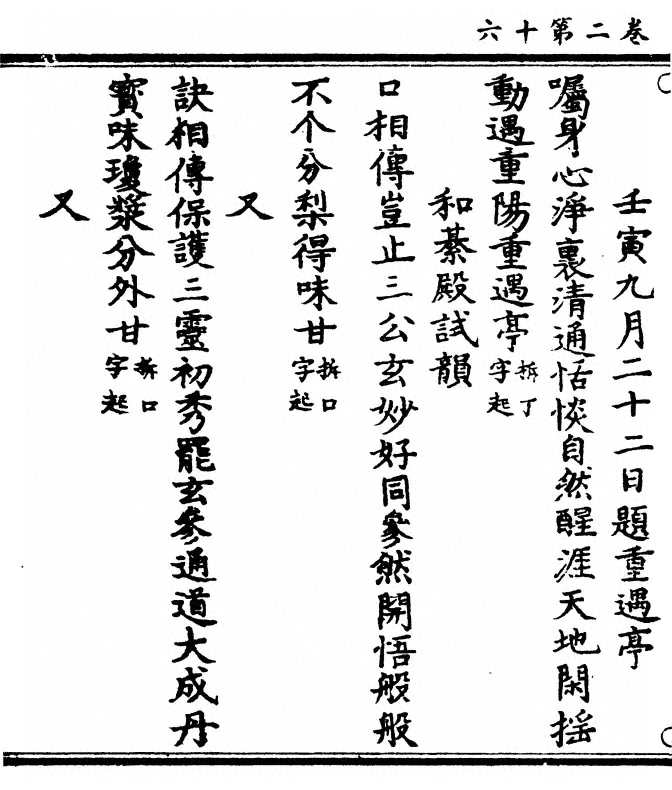 卷二第十六
壬寅九月二十二日題重遇亭
囑身心淨裏清通恬惔自然醒涯天地閑揺
動遇重陽重遇亭拆丁字起
和綦殿試韻
口相傳豈止三公玄妙好同參然開悟般般
不个分梨得味甘拆口字起
又
訣相傳保護三靈初秀罷玄參通道大成丹
寶味瓊漿分外甘拆口字起
又